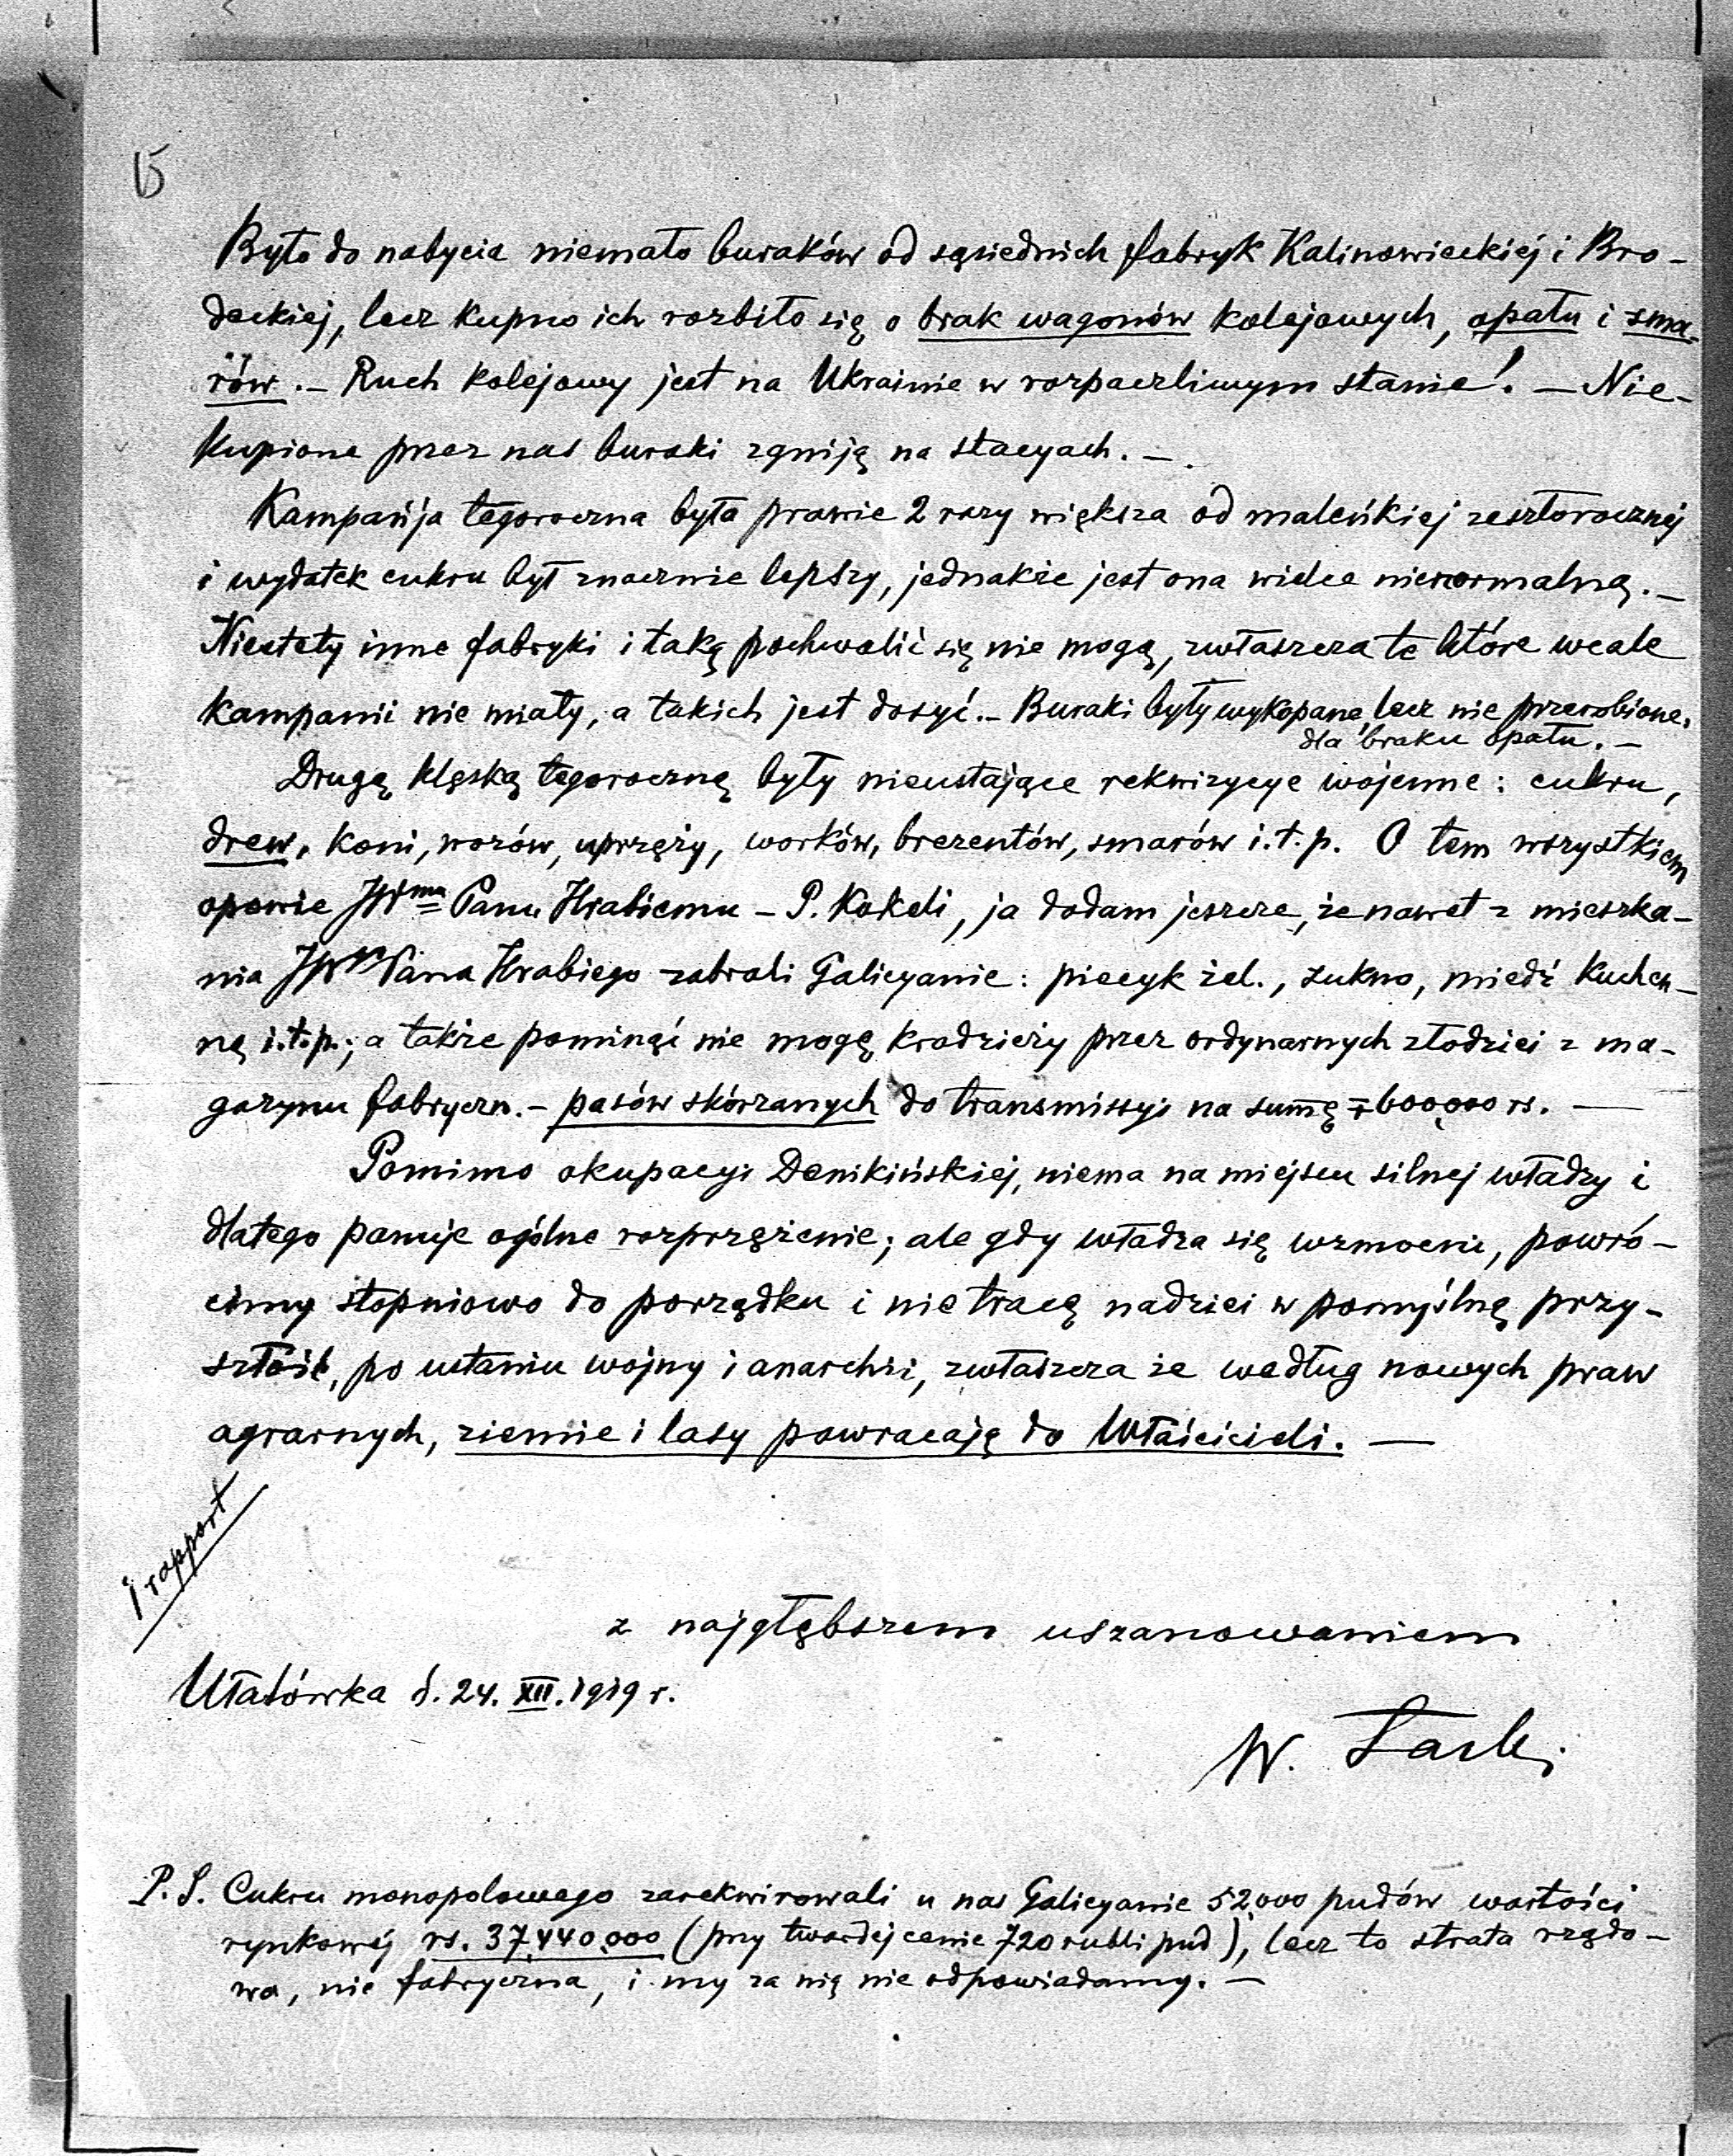 15
Było do nabycia niemało buraków od sąsiednich fabryk Kalinowieckiej i Bro-
deckiej, lecz kupno ich rozbiło się o brak wagonów kolejowych, opału i sma-
rów. — Ruch kolejowy jest na Ukrainie w rozpaczliwym stanie! — Nie-
kupione przez nas buraki zgniją na stacyach. —
Kampańja tegoroczna była prawie 2 razy większa od maleńkiej zeszłorocznej
i wydatek cukru był znacznie lepszy, jednakże jest ona wielce nienormalną. —
Niestety inne fabryki i taką pochwalić się nie mogą, zwłaszcza te które wcale
kampanii nie miały, a takich jest dosyć. — Buraki były wykopane, lecz nie przerobione,
dla braku opału. —
Drugą klęską tegoroczną były nieustające rekwizycye wojenne: cukru,
drew, koni, wozów, uprzęży, worków, brezentów, smarów i.t.p. O tem wszystkiem
opowie JWmu Panu Hrabiemu — P. Kokeli, ja dodam jeszcze, że nawet z mieszka-
nia JWgo Pana Hrabiego zabrali Galicyanie: piecyk żel., sukno, miedź kuchen-
ną i.t.p.; a także pominąć nie mogę kradzieży przez ordynarnych złodziei z ma-
gazynu fabryczn. — pasów skórzanych do transmissyi na sumę ∓ 600,000 rs. —
Pomimo okupacyi Denikińskiej, niema na miejscu silnej władzy i
dlatego panuje ogólne rozprzężenie; ale gdy władza się wzmocni, powró-
cimy stopniowo do porządku i nie tracę nadziei w pomyślną przy-
szłość, po ustaniu wojny i anarchii, zwłaszcza że według nowych praw
agrarnych, ziemie i lasy powracają do Właścicieli. —
i rapport
z najgłębszem uszanowaniem
Ułatówka d. 24. XII. 1919 r.
W.
P.S. Cukru monopolowego zarekwirowali u nas Galicyanie 52,000 pudów wartości
rynkowej rs. 37,440,000 (przy twardej cenie 720 rubli pud), lecz to strata rządo-
wa, nie fabryczna, i my za nią nie odpowiadamy. —